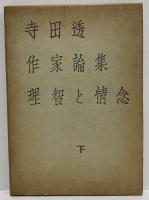 寺田透
作家論集
理智と情念
下